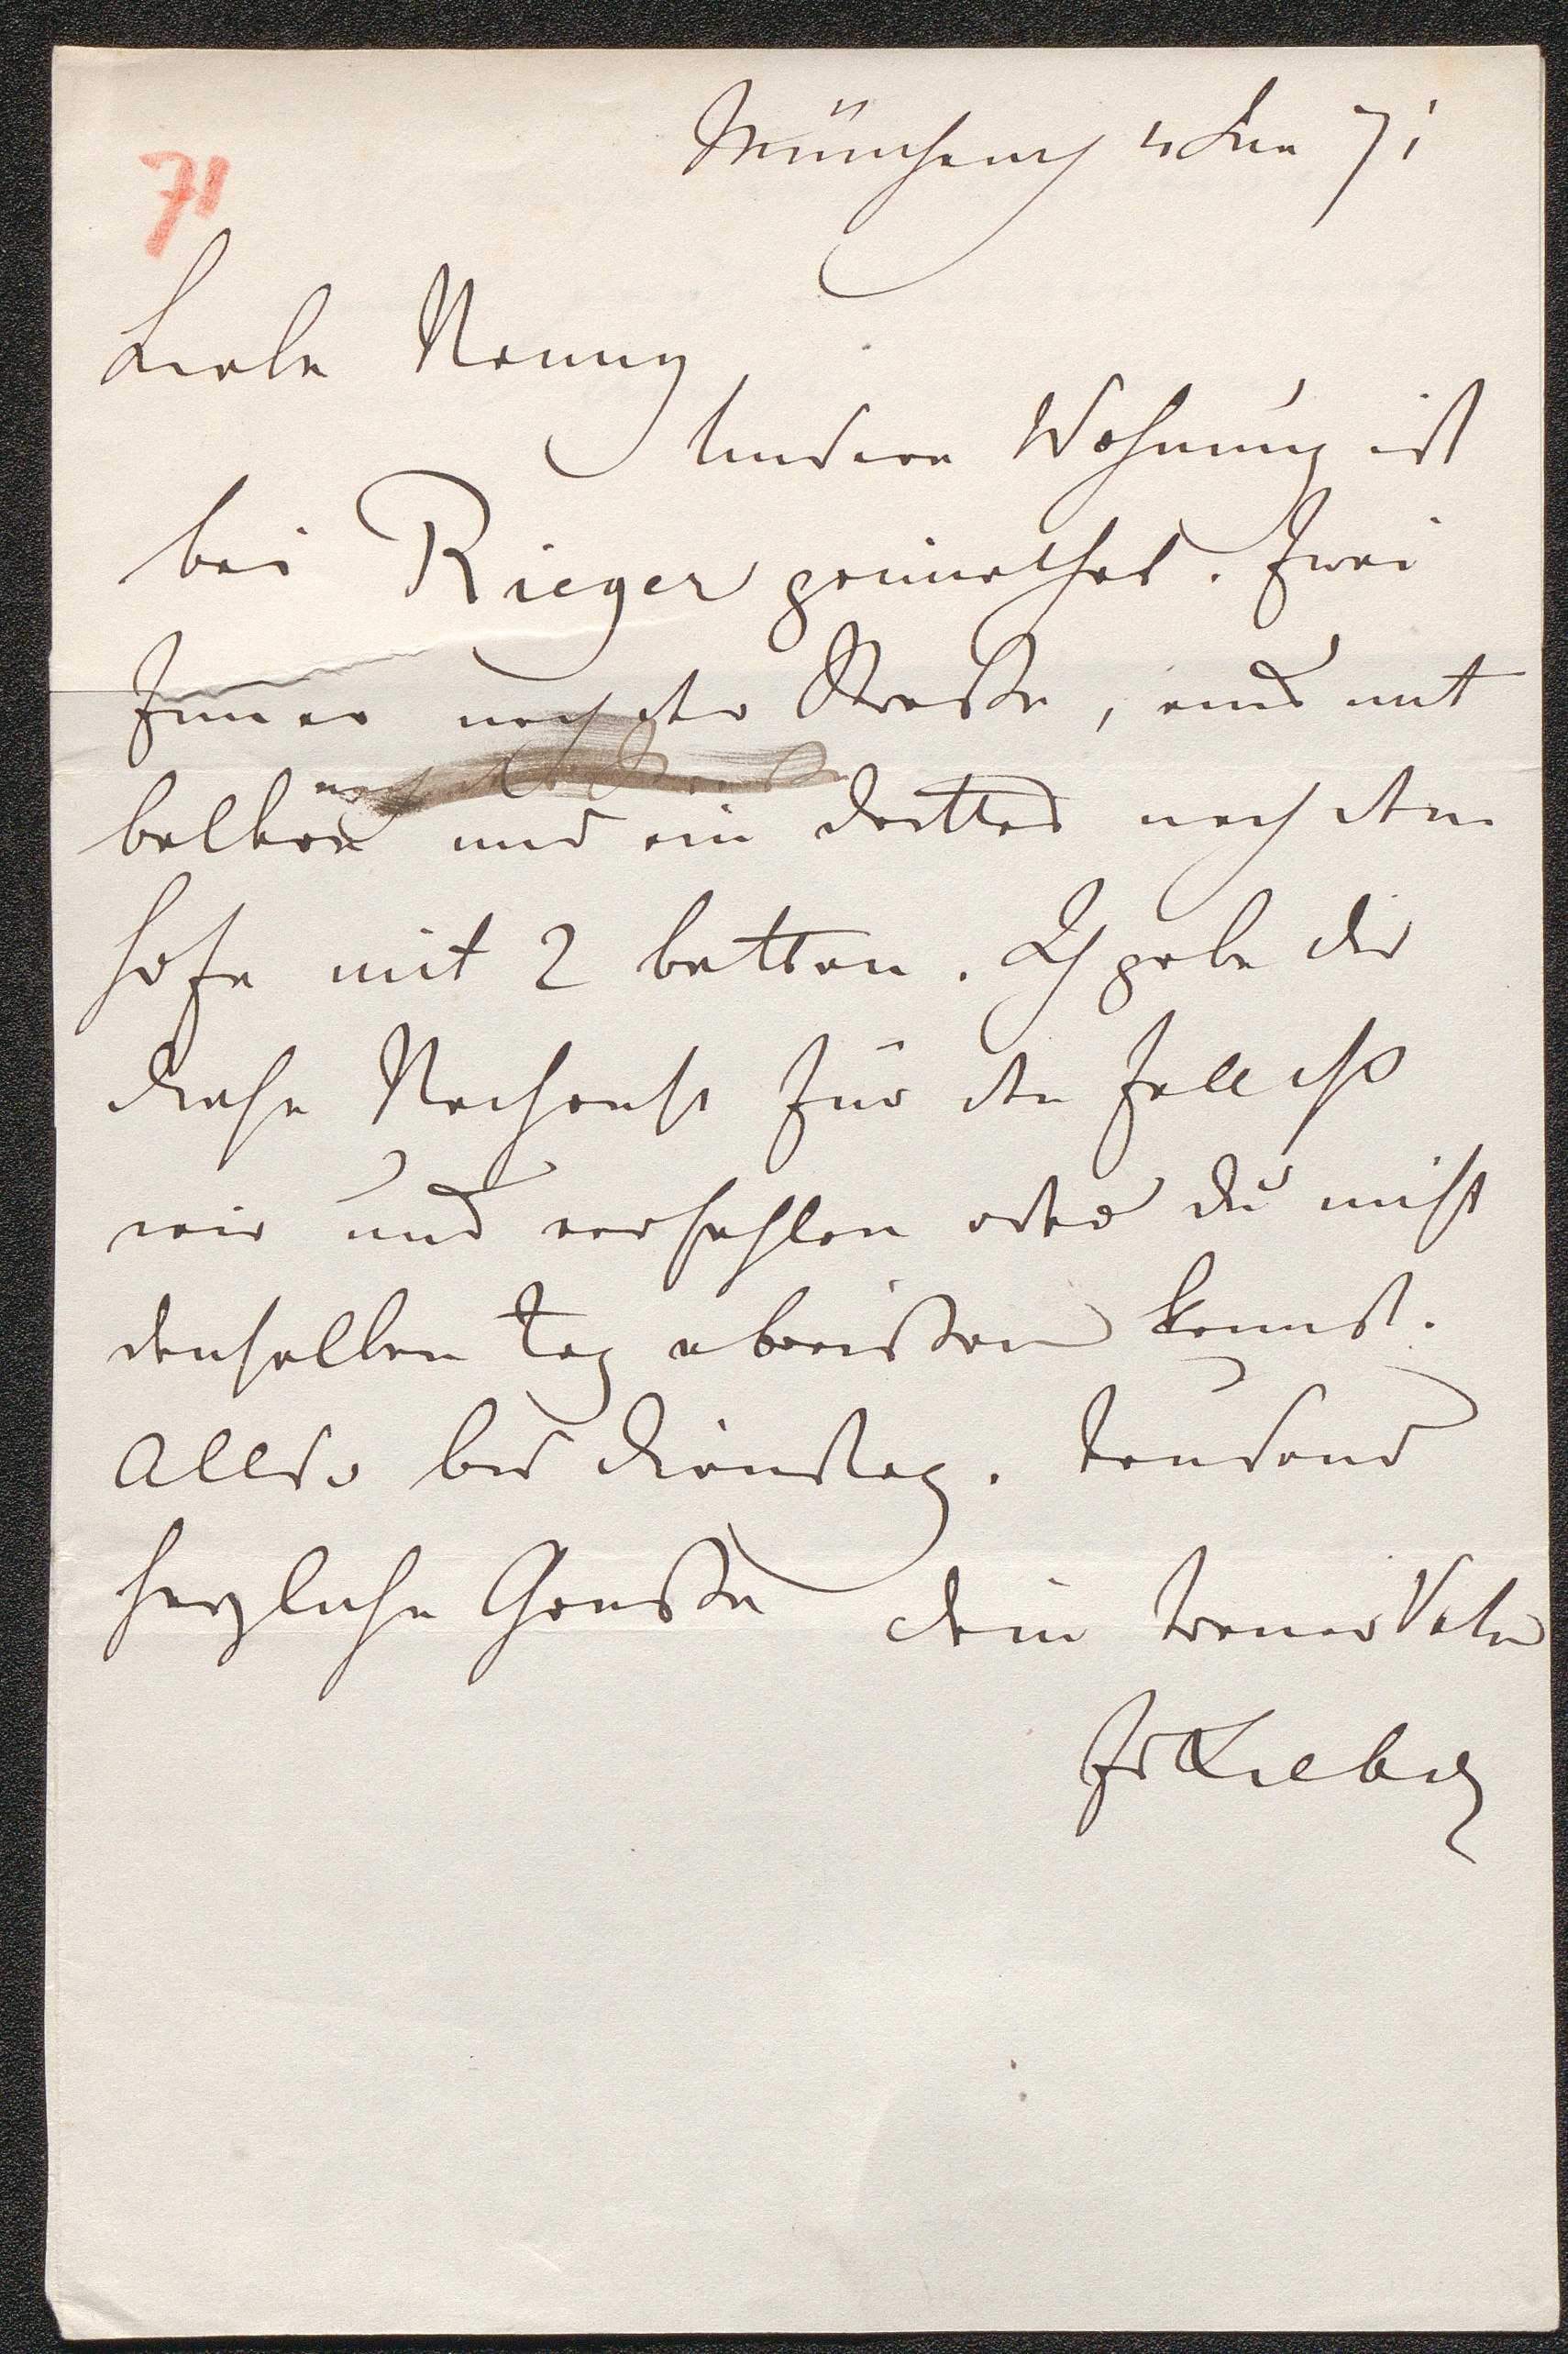 München 4 Jun 71
71
Liebe Nanny
Unsere Wohnung ist
bei Rieger gemiethet. Zwei
Zimer nach der Straße, eins mit
balkon und ein drittes nach dem
Hofe mit 2 betten. Ich gebe dir
diese Nachricht für den Fall daß
wir uns verfehlen oder du nicht
denselben Tag abreisen kannst.
Allso bis Dienstag. Tausend
herzliche Grüße dein treuer Vater
JvLiebig